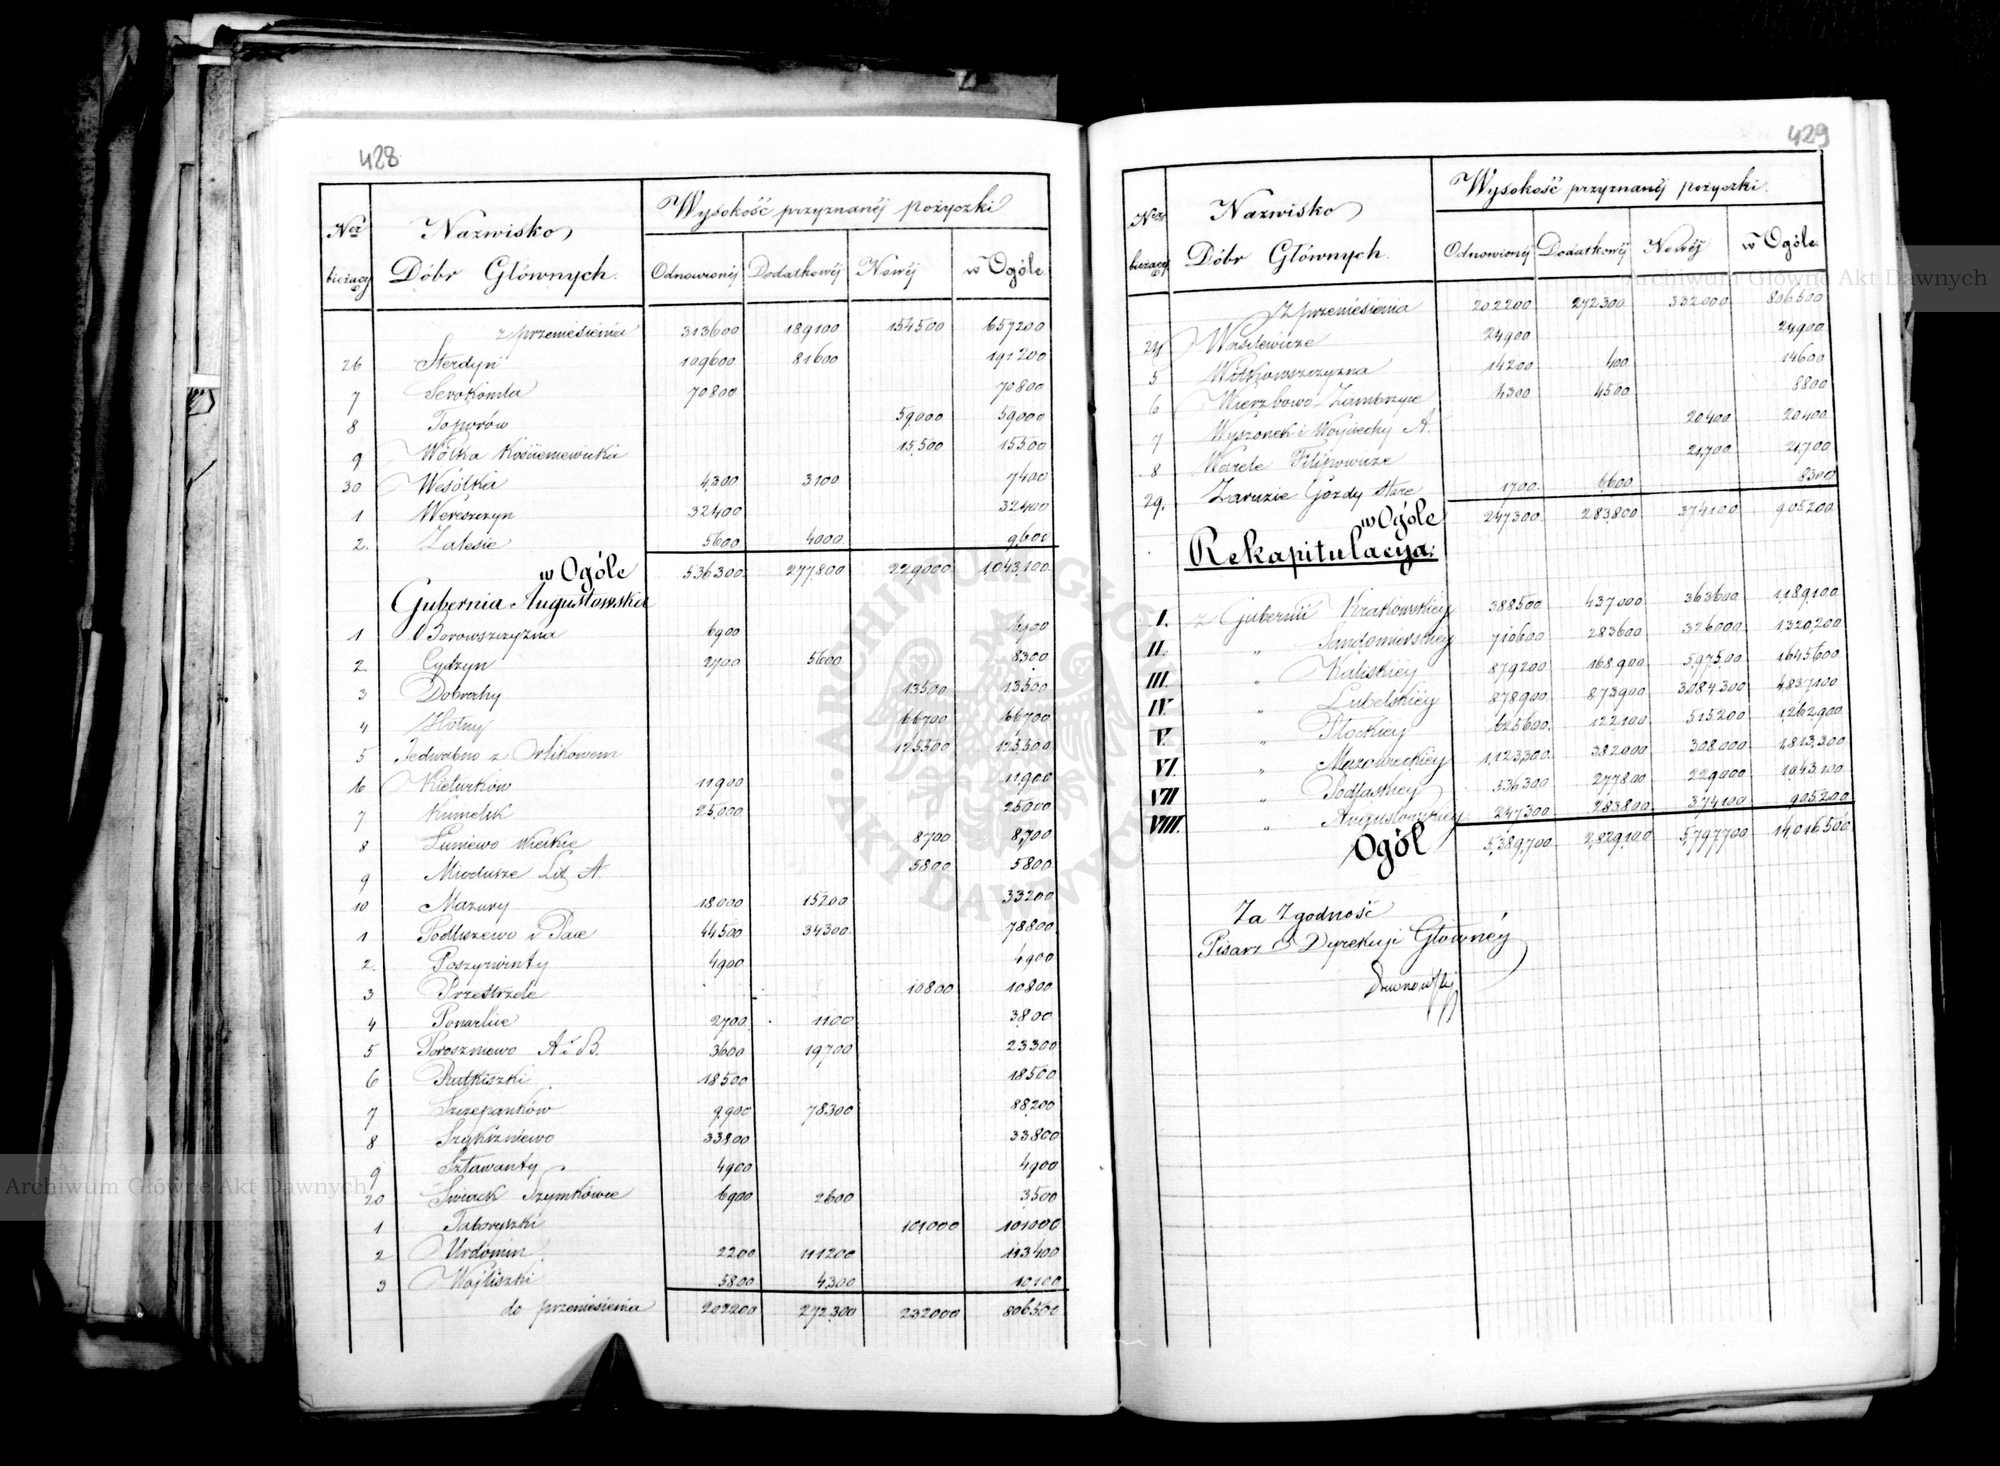 428
Ner bieżący | Nazwisko Dóbr Głównych. | Wysokość przyznanéj pożyczki
Odnowionéj | Dodatkowéj | Nowéj | w Ogóle
z przeniesienia 313600 189100 154500 657200
26 Sterdyń 109600 81600 191200
7 Serokomla 70800 70800
8 Toporów 59000 59000
9 Wólka Kośieniewicka 15,500 15500
30 Wesółka 4,300 3100 7400
1 Wereszczyn 32400 32400
2. Zalesie 5600 4000 9,600
w Ogóle 536300 277,800 229000 1,043,100
Gubernia Augustowska
1 Borowszczyzna 6900 6900
2. Cydzyn 2700 5600 8300
3 Dobrochy 13500 13500
4 Hołny 66700 66700
5 Jedwabno z Orlikowem 125500 125,500
6 Kieturków 11900 11,900
7 Kumelsk 25,000 25000
8 Łuniewo Wielkie 8700 8,700
9 Miodusze Lit. A. 5800 5800
10 Mazury 18000 15200 33200
1 Podliszewo i Pace 44500 34300 78800
2. Poszyrwinty 4900 4900
3 Przestrzele 10800 10800
4 Ponarlice 2700 1100 3,800
5 Poroszniewo A i B. 3600 19700 23300
6 Rutkiszki 18500 18500
7 Szczepanków 9,900 78300 88,200
8 33800 33800
9 Sztawanty 4900 4900
20 Świack Szymkówce 6900 2600 3,500
1 Taboryszki 101,000 101000
2 Urdomin 2200 111200 113400
3 Wojtiszki 5800 4,300 10,100
do przeniesienia 202200 272,300 332000 806,500
429
Ner bieżący | Nazwisko Dóbr Głównych. | Wysokość przyznanéj pożyczki.
Odnowionéj | Dodatkowéj | Nowéj | w Ogóle.
Z przeniesienia 202200 272300 332000 806500
24 Wasilewicze 24900 24900
5 Witkowszczyzna 14200 400 14600
6 Wierzbowo Zambrzyce 4300 4500 8800
7 Wyszonek i Wojciechy A. 20400 20400
8 Warele Filipowicze 21,700 21,700
29. Zaruzie Gozdy stare 1700 6,600 8300
w Ogóle 247300 283,800 374100 905200
Rekapitulacya:
I. z Gubernii Krakowskiéj 388500 437000 363600 1,189,100
II. " Sandomierskiéj 710600 283600 326000 1,320,200
III. " Kaliskiéj 879200 168,900 597500 1645600
IV. " Lubelskiéj 878,900 873900 3,084,300 4,837,100
V. " Płockiéj 625600 122,100 515200 1,262,900
VI. " Mazowieckiéj 1,123,300 382000 308,000 1,813,300
VII " Podlaskiéj 536300 277800 229000 1,043,100
VIII. " Augustowskiéj 247300 283800 374100 905200
Ogół 5,389,700 2,829,100 5,797,700 14,016,500
Za Zgodność
Pisarz Dyrekcji Głównéj
Drewnowski
Archiwum Główne Akt Dawnych
Archiwum Główne Akt Dawnych
ARCHIWUM GŁÓWNE AKT DAWNYCH